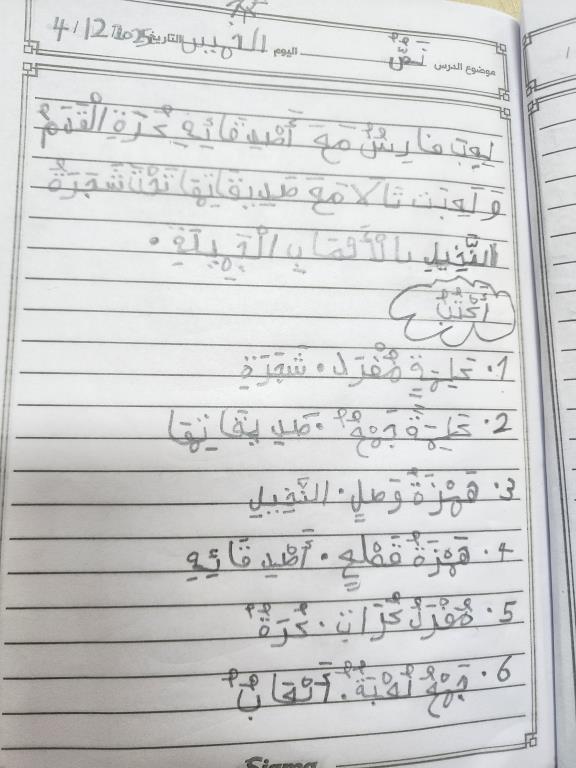 موضوع الدرس نصّ اليوم الخميس التاريخ 4/12/2025
لَعِبَ فارِسُ مَعَ أَصْدِقائِهِ كُرَةِ الْقَدَمِ
وَلَعِبَت تالا مَعَ صَديقاتِها تَحْتَ شَجَرَةُ
النَّخِيلِ بِالْأَلْعابِ الْجَميلَةِ.
أَكْتُبُ
1. كَلِمَةٍ مُفْرَد. شَجَرَةِ
2. كَلِمَةٌ جَمْعٌ. صَديقاتِها
3. هَمْزَةُ وَصلٍ. النَّخِيلِ
4. هَمْزَةُ قَطْعٍ. أَصْدِقائِهِ
5. مُفْرَدُ كُرَات. كُرَةٌ
6. جَمْعُ لُعْبَةٌ. أَلْعابٌ
Sigma